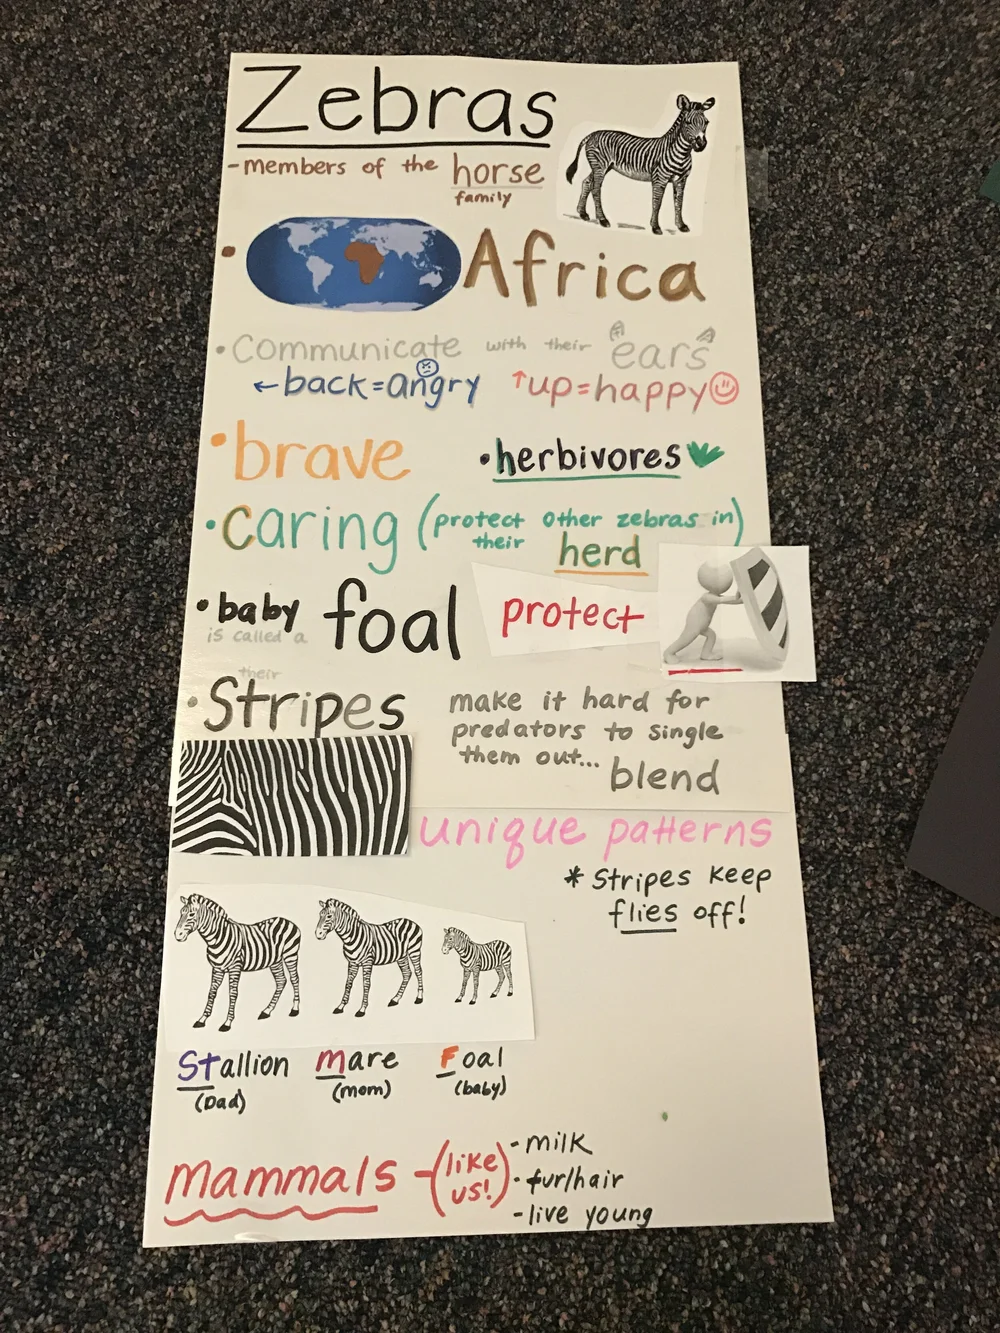 Zebras
-members of the horse
family
• Africa
•Communicate with their ears
←back=angry ↑up=happy
•brave •herbivores
•Caring (protect other zebras in)
their herd
•baby foal protect
is called a
their
•Stripes make it hard for
predators to single
them out... blend
unique patterns
* Stripes keep
flies off!
Stallion Mare Foal
(Dad) (mom) (baby)
Mammals -(like us!)
-milk
-fur/hair
-live young